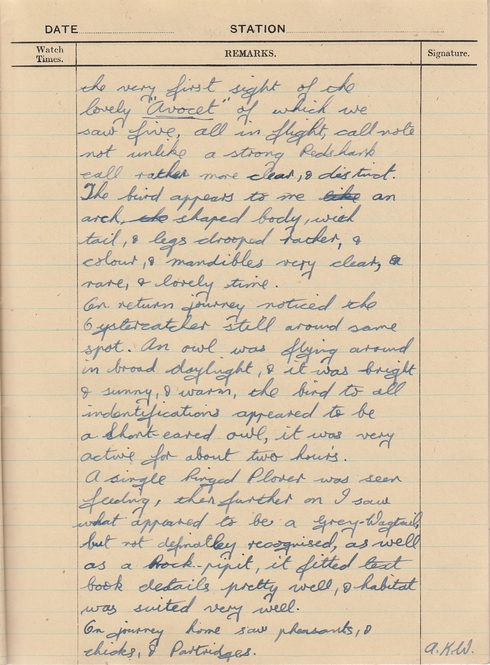 DATE STATION
Watch Times. REMARKS. Signature.
the very first sight of the
lovely "Avocet" of which we
saw five, all in flight, call note
not unlike a strong Redshank
call rather more clear, & distinct.
The bird appears to me like an
arch, the shaped body, with
tail, & legs drooped rather, &
colour, & mandibles very clear, a
rare, & lovely time.
On return journey noticed the
Oystercatcher still around same
spot. An owl was flying around
in broad daylight, & it was bright
& sunny, & warm, the bird to all
indentifications appeared to be
a Short-eared owl, it was very
active for about two hours.
A single Ringed Plover was seen
feeding, then further on I saw
what appeared to be a Grey-Wagtail,
but not definatley recognised, as well
as a Rock-pipit, it fitted text
book details pretty well, & habitat
was suited very well.
On journey home saw pheasants, &
chicks, & Partridges. A.K.W.